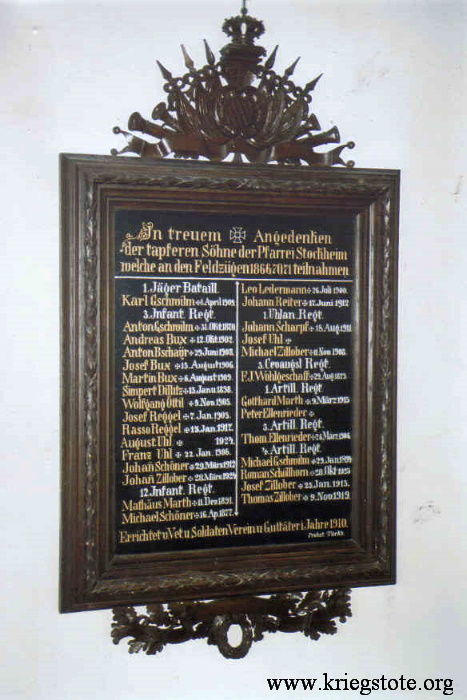 In treuem Angedenken
der tapferen Söhne der Pfarrei Stockheim
welche an den Feldzügen 1866 70/71 teilnahmen
1. Jäger Bataill.
Karl Gschwilm + 4. April 1909.
3. Infant. Regt.
Anton Gschwilm + 31. Okt. 1870.
Andreas Bux + 12. Okt. 1902.
Anton Bschayr + 25. Juni 1908.
Josef Bux + 15. August 1906.
Martin Bux + 6. August 1909.
Simpert Dillitz + 15. Jan. 1898.
Wolfgang Öttl + 9. Nov. 1905.
Josef Reggel + 7. Jan. 1903.
Rasso Reggel + 13. Jan. 1912.
August Uhl + 1924.
Franz Uhl + 22. Jan. 1906.
Johañ Schöner + 29. März 1912
Johañ Zillober + 28. März 1924
12. Infant. Regt.
Mathäus Marth + 11. Dez. 1891.
Michael Schöner + 16. Ap. 1877.
Leo Ledermann + 26. Juli 1900.
Johann Reiter + 17. Juni 1912
1. Uhlan. Regt.
Johann Scharpf + 18. Aug. 1911
Josef Uhl +
Michael Zillober + 11. Nov. 1905.
3. Cevaugsl. Regt.
F.J. Wohlgeschaff + 29. Aug. 1873.
1. Artill. Regt.
Gotthard Marth + 9. März 1915
Peter Ellenrieder +
3. Artill. Regt.
Thom. Ellenrieder + 24. März 1906
4. Artill. Regt.
Michael Gschwilm + 29. Jan. 1894
Roman Schöllhorn + 28. Okt. 1925
Josef Zillober + 23. Jan. 1913.
Thomas Zillober + 9. Nov. 1919.
Errichtet v. Vet. u. Soldaten Verein u. Guttäter i. Jahre 1910.
www.kriegstote.org